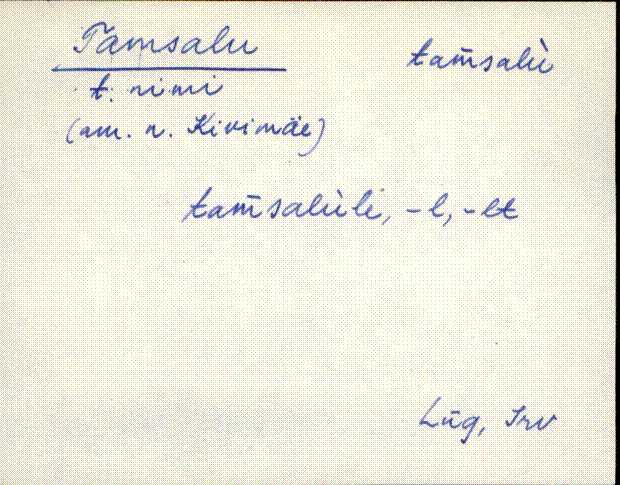 Tamsalu tam̄salù
t. nimi
(am. n. Kivimäe)
tam̄salùle, -l, -lt
Lüg, Irv